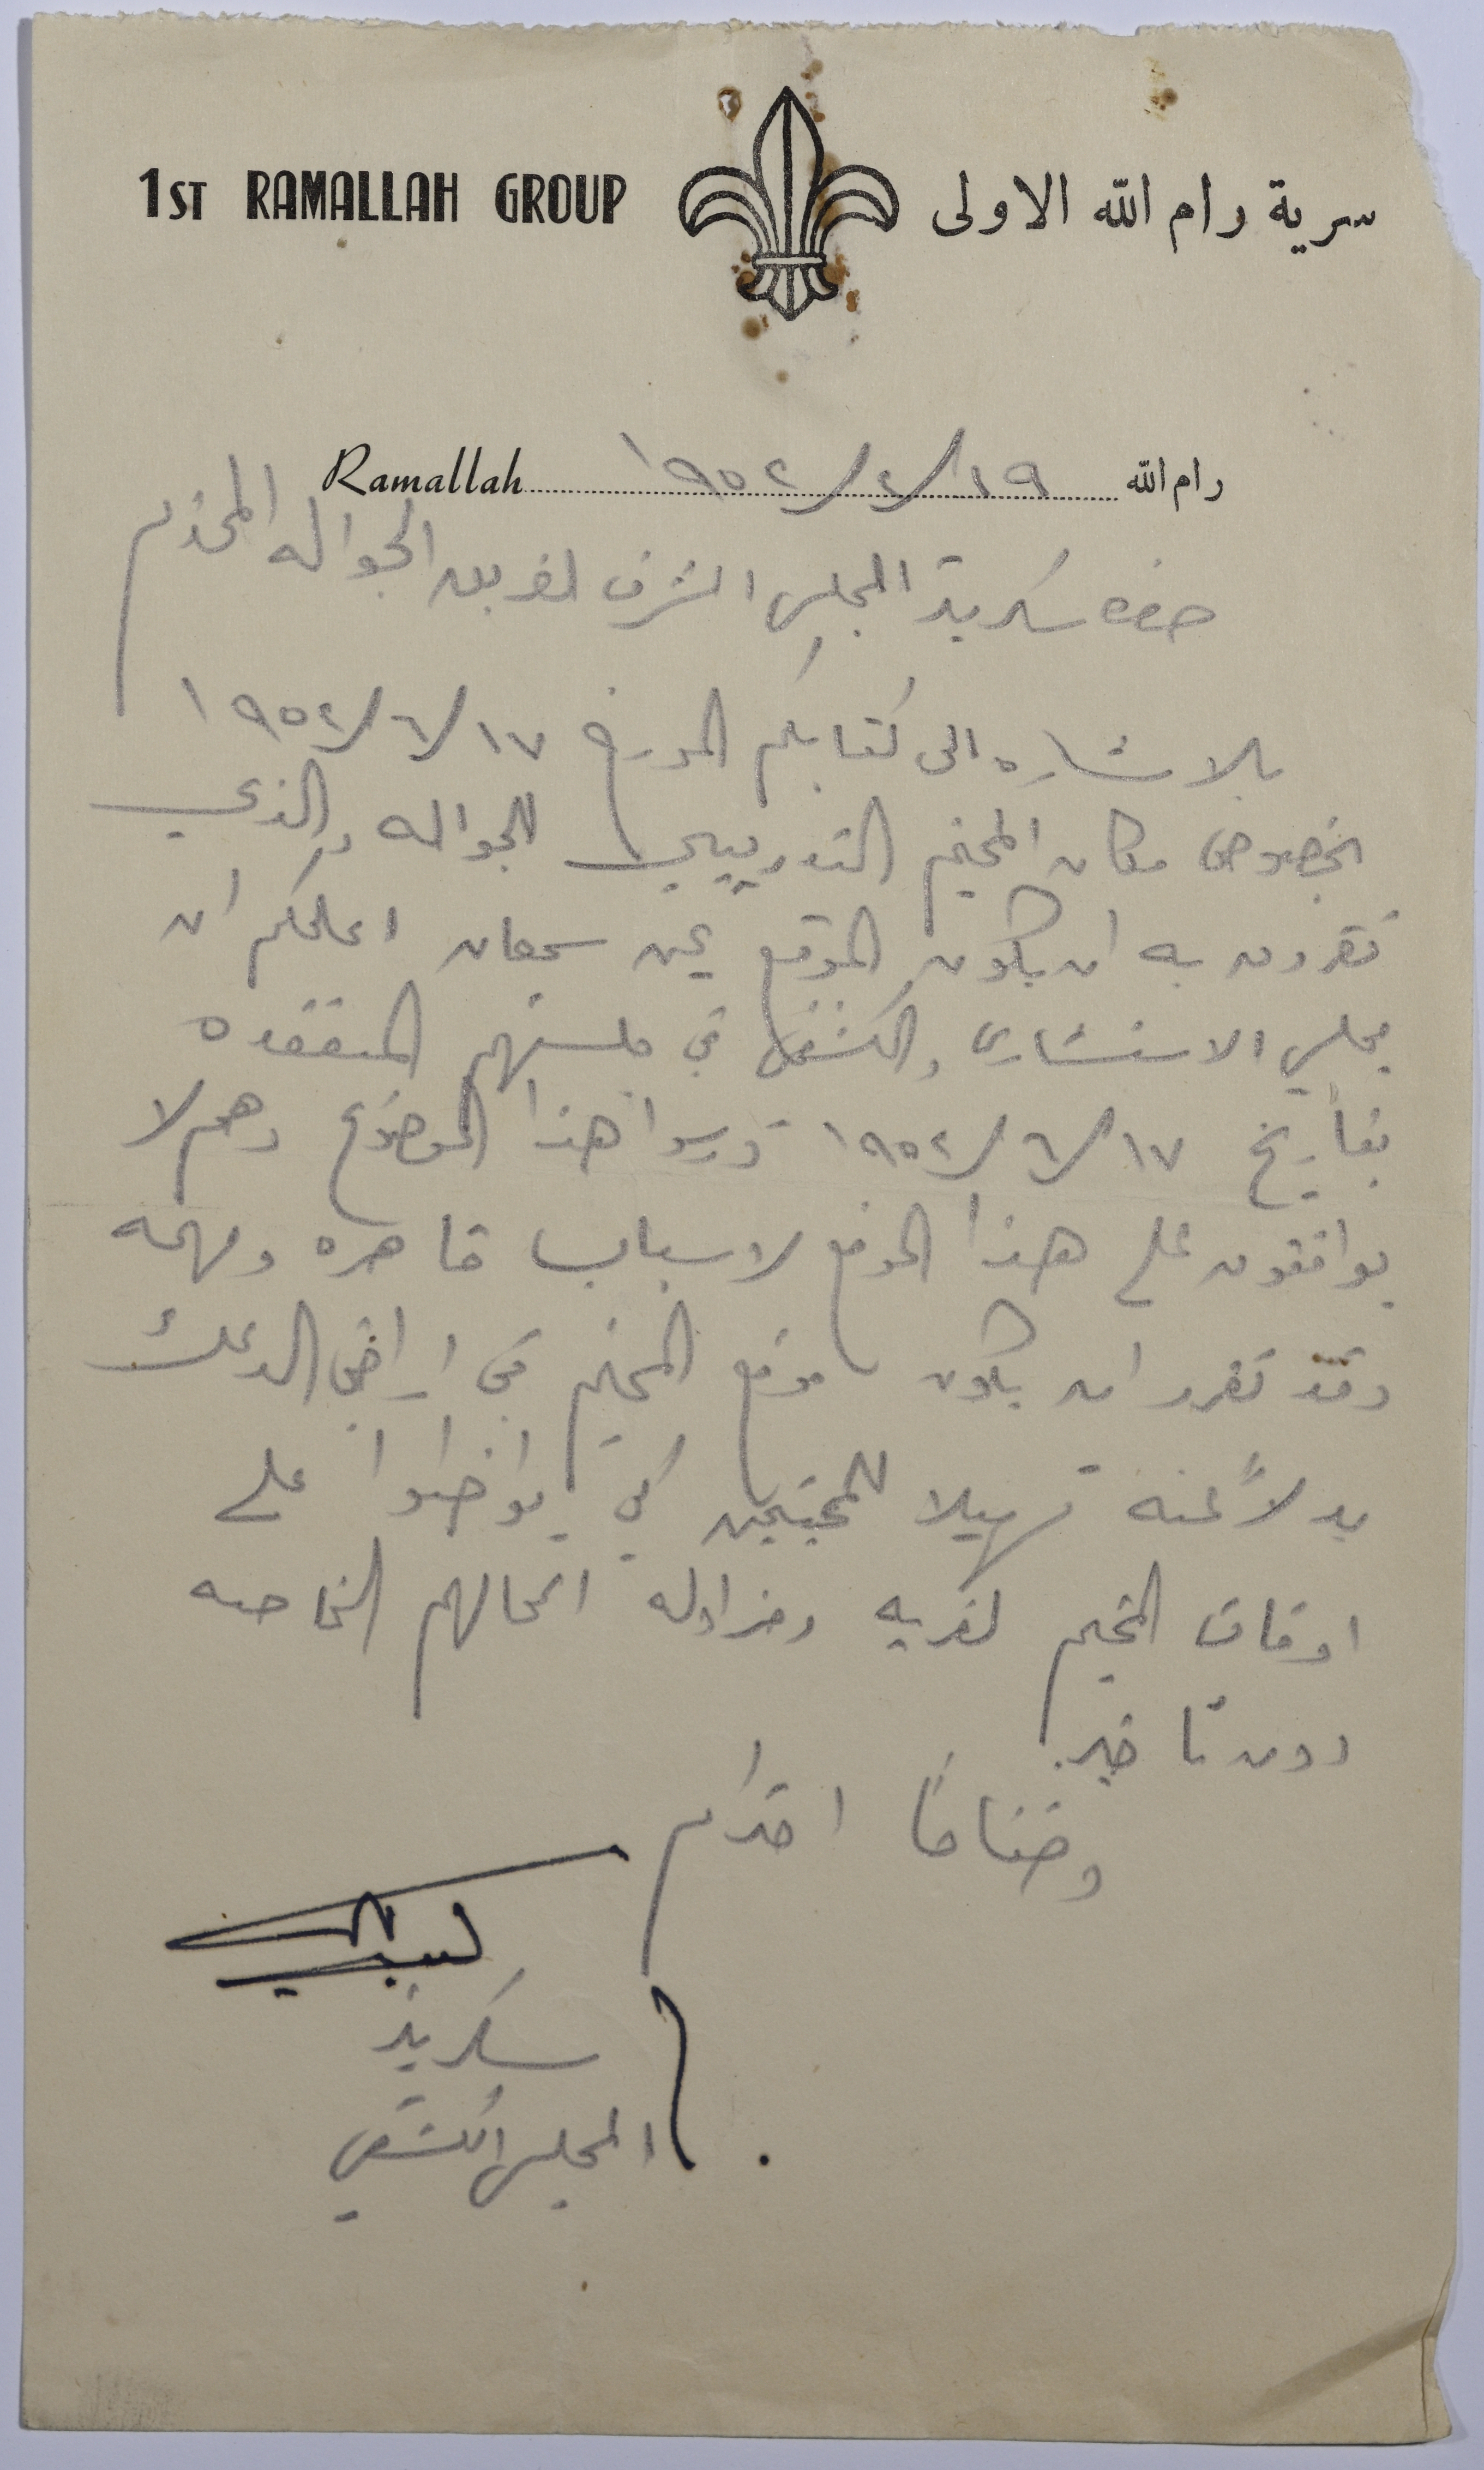 1ST RAMALLAH GROUP سرية رام الله الاولى
رام الله ١٩/٢/١٩٥٢ Ramallah
حضرة سكرتير المجلس الشرف لفريق الجواله المحترم
بالاشاره الى كتابكم المورخ ١٧/٦/١٩٥٢
بخصوص مكان المخيم التدريبي للجواله والذي
تقررون به ان يكون الموقع عين سمعان اعلمكم ان
مجلسي الاستشاري والكشفي في جلستهم المنعقده
بتاريخ ١٧/٦/١٩٥٢ درسوا هذا الموضوع وهم لا
يوافقون على هذا الموقع لاسباب قاهره ومهمه
وقد تقرر ان يكون موقع المخيم في اراضي الدعك
بدلاً عنه تسهيلا للمخيمين كي يواضبوا على
اوقات المخيم لقربه ومزاوله اعمالهم الخاصه
دون تاخير.
وختاماً احترام
سكرتير
المجلس الكشفي